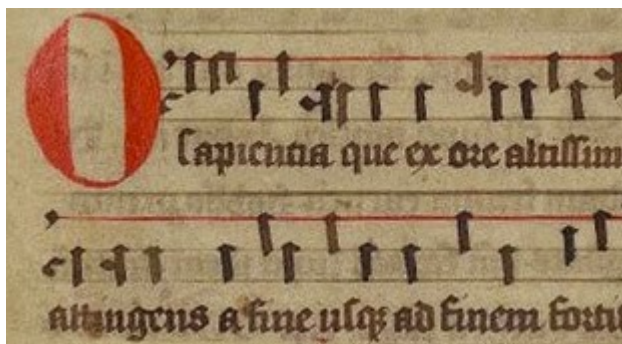 O sapientia que ex ore altissim
attingens a fine usqz ad finem forti